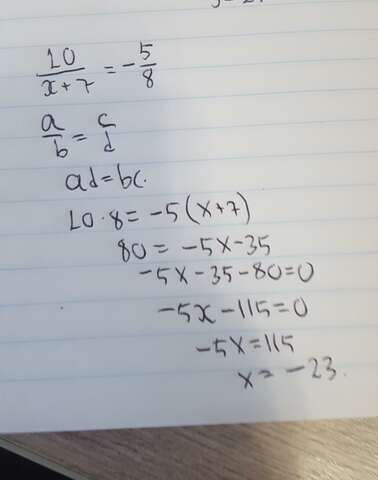 10/(x+7) = -5/8
a/b = c/d
ad=bc.
10·8 = -5(x+7)
80 = -5x-35
-5x-35-80=0
-5x-115=0
-5x=115
x=-23.